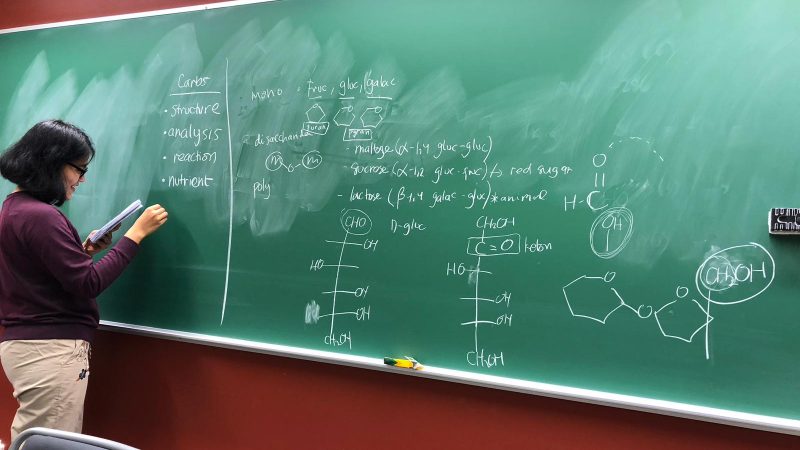 Carbs
• structure
• analysis
• reaction
• nutrient
mono • fruc, gluc, galac
O O O
furan pyran
disaccharide
m o m
poly
- maltose (α-1,4 gluc-gluc)
- sucrose (α-1,2 gluc-fruc) ↳ red sugar
- lactose (β-1,4 galac-gluc) * animal
CHO D-gluc
OH
HO
OH
OH
CH₂OH
CH₂OH
C=O keton
HO
OH
OH
CH₂OH
O
H-C
OH
O O O CH₂OH